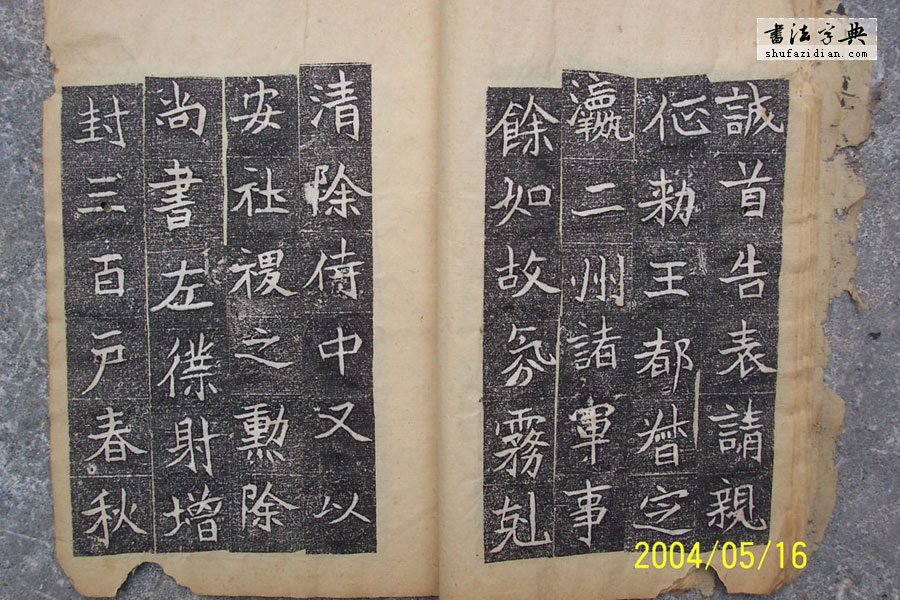 書法字典
shufazidian.com
誠首告表請親
勑王都督定
瀛二州諸軍事
餘如故氛霧剋
清除侍中又以
安社稷之勲除
尚書左僕射增
封三百戶春秋
2004/05/16